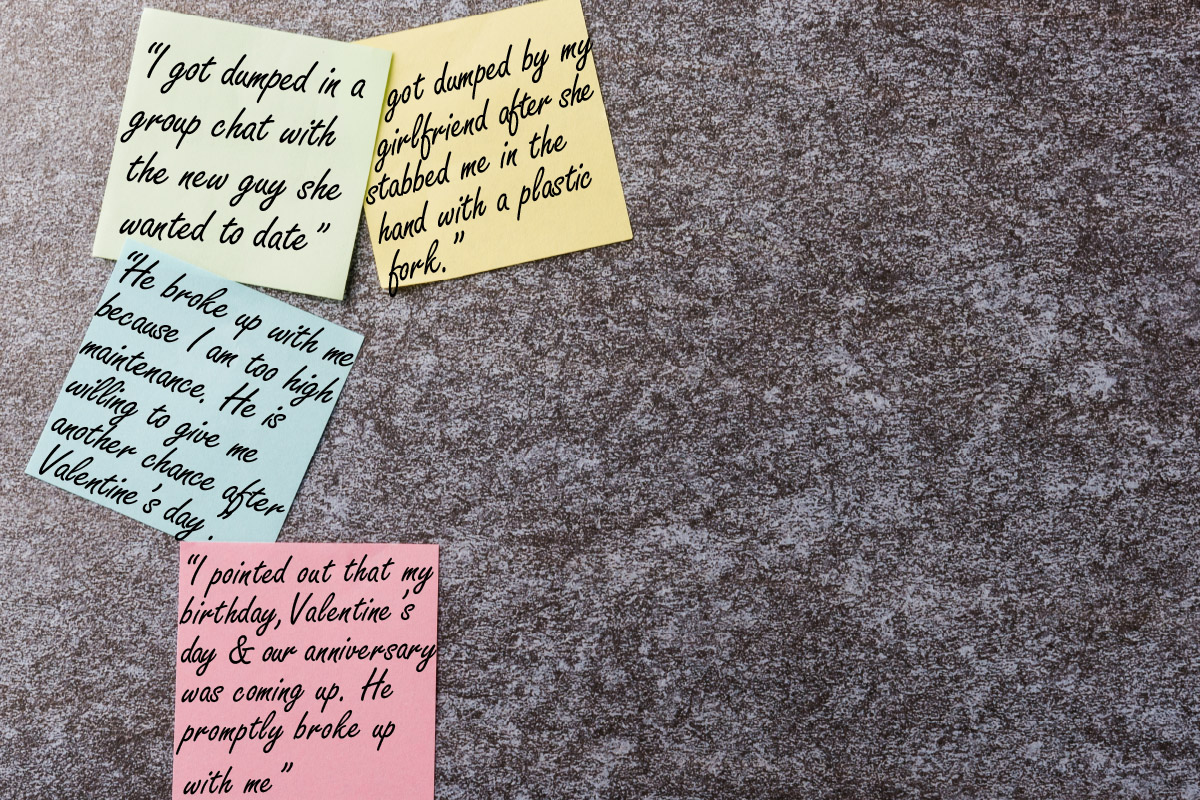 "I got dumped in a
group chat with
the new guy she
wanted to date"
got dumped by my
girlfriend after she
stabbed me in the
hand with a plastic
fork."
"He broke up with me
because I am too high
maintenance. He is
willing to give me
another chance after
Valentine's day."
"I pointed out that my
birthday, Valentine's
day & our anniversary
was coming up. He
promptly broke up
with me"